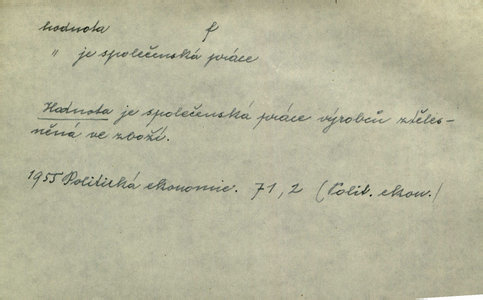 hodnota f
" je společenská práce
Hodnota je společenská práce výrobců ztěles-
něná ve zboží.
1955 Politická ekonomie. 71, 2 (Polit. ekon.)